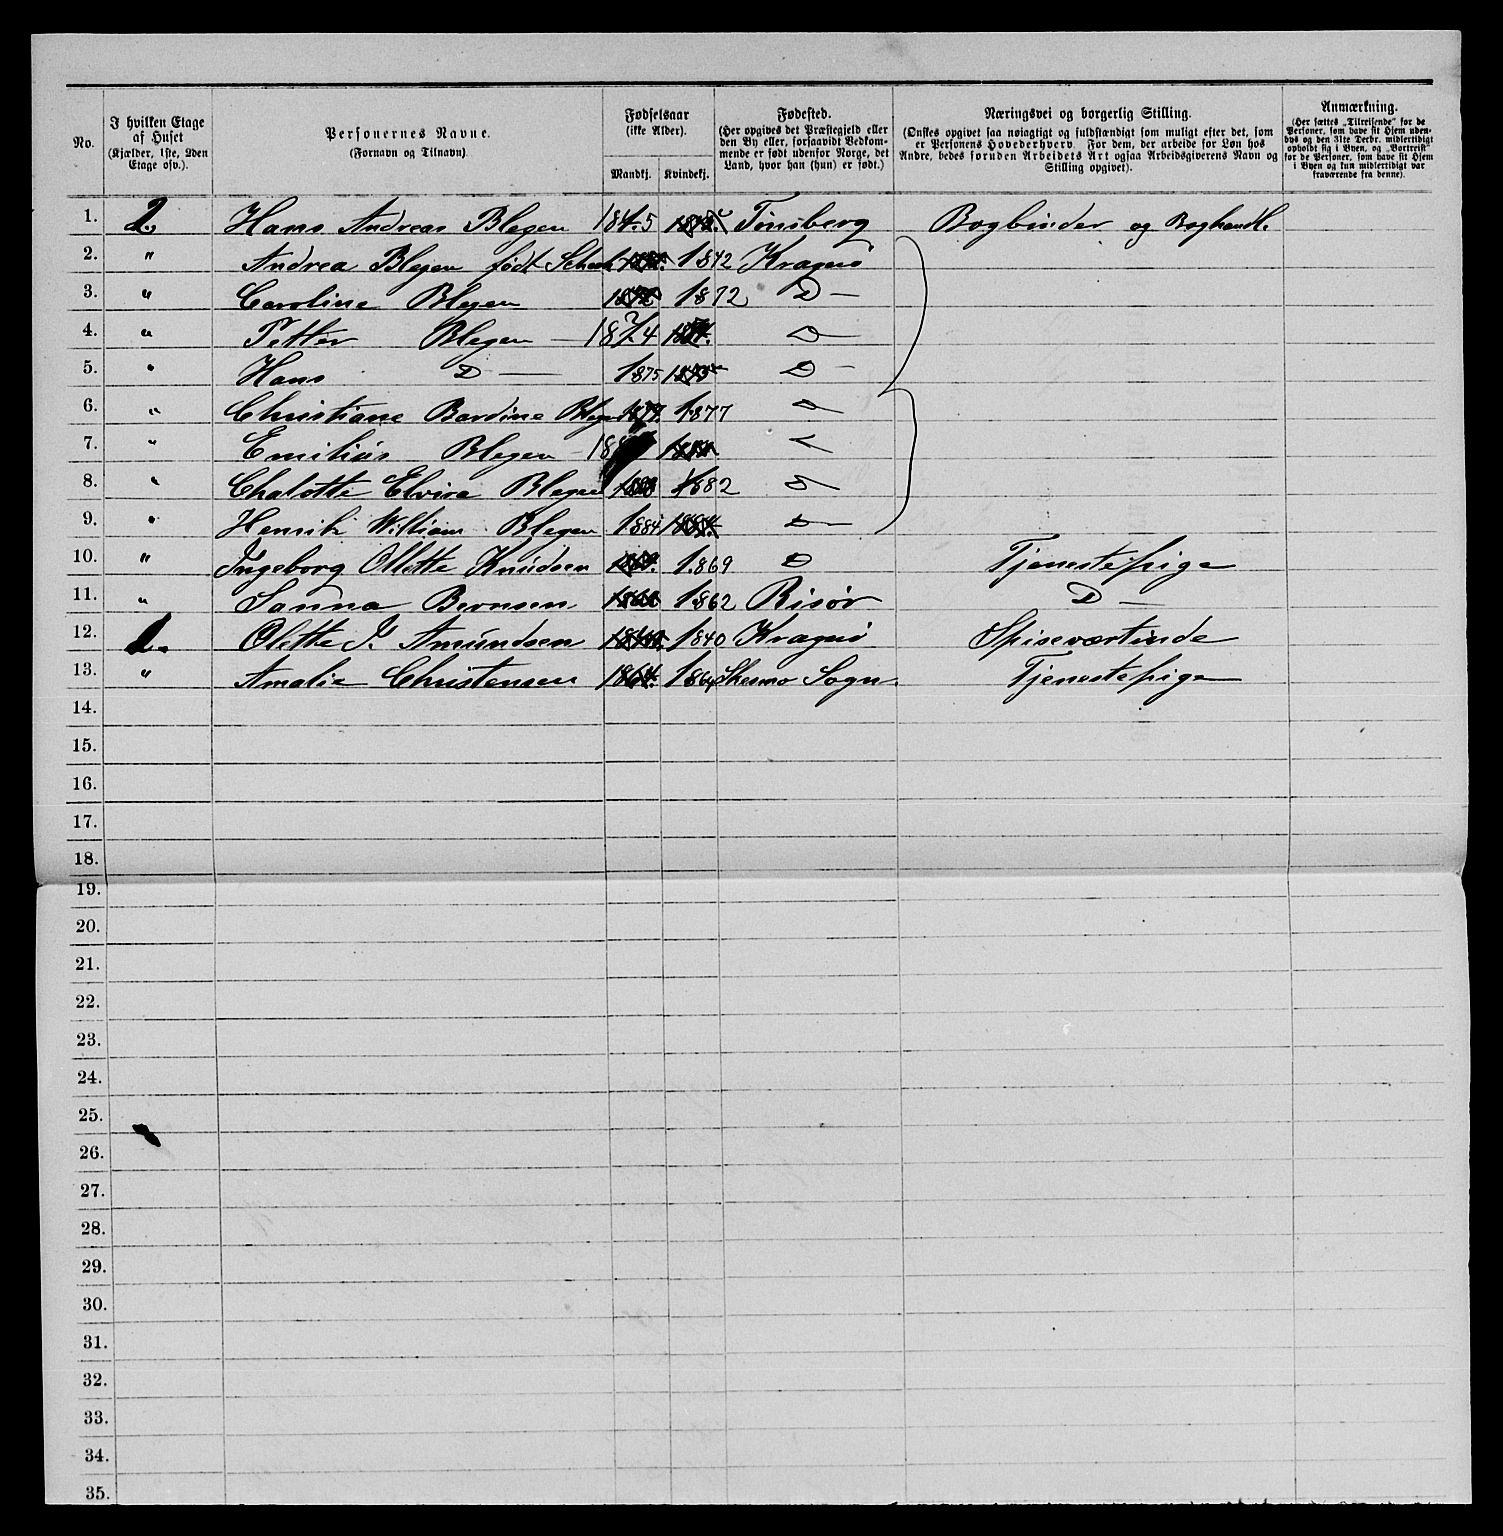 No.
I hvilken Etage af Huset (Kjælder, 1ste, 2den Etage osv.).
Personernes Navne. (Fornavn og Tilnavn).
Fødselsaar (ikke Alder). Mandkj. Kvindekj.
Fødested. (Her opgives det Præstegjeld eller den By eller, forsaavidt Vedkommende er født udenfor Norge, det Land, hvor han (hun) er født.)
Næringsvei og borgerlig Stilling. (Ønskes opgivet saa nøiagtigt og fuldstændigt som muligt efter det, som er Personens Hovederhverv. For dem, der arbeide for Løn hos Andre, bedes foruden Arbeidets Art ogsaa Arbeidsgiverens Navn og Stilling opgivet).
Anmærkning. (Her sættes „Tilreisende" for de Personer, som have sit Hjem udenbys og den 31te Decbr. midlertidigt opholdt sig i Byen, og „Bortreist" for de Personer, som have sit Hjem i Byen og kun midlertidigt var fraværende fra denne).
1. 2. Hans Andreas Blegen 1845 Tønsberg Bogbinder og Boghandl.
2. " Andrea Blegen født 1842 Kragerø
3. " Caroline Blegen 1872 D —
4. " Petter Blegen — 1874 D —
5. " Hans D — 1875 D —
6. " Christiane Bardine Blegen 1877 D —
7. " Emilius Blegen - D —
8. " Chalotte Elvira Blegen 1882 D —
9. " Henrik William Blegen 1884 D —
10. " Ingeborg Olette Knudsen 1869 D Tjenestepige
11. " Sanna Bernsen 1862 Risør D —
12. 1. Olette J. Amundsen 1840 Kragerø Spiseværtinde
13. " Amalie Christensen 1864 Sogn. Tjenestepige
14.
15.
16.
17.
18.
19.
20.
21.
22.
23.
24.
25.
26.
27.
28.
29.
30.
31.
32.
33.
34.
35.